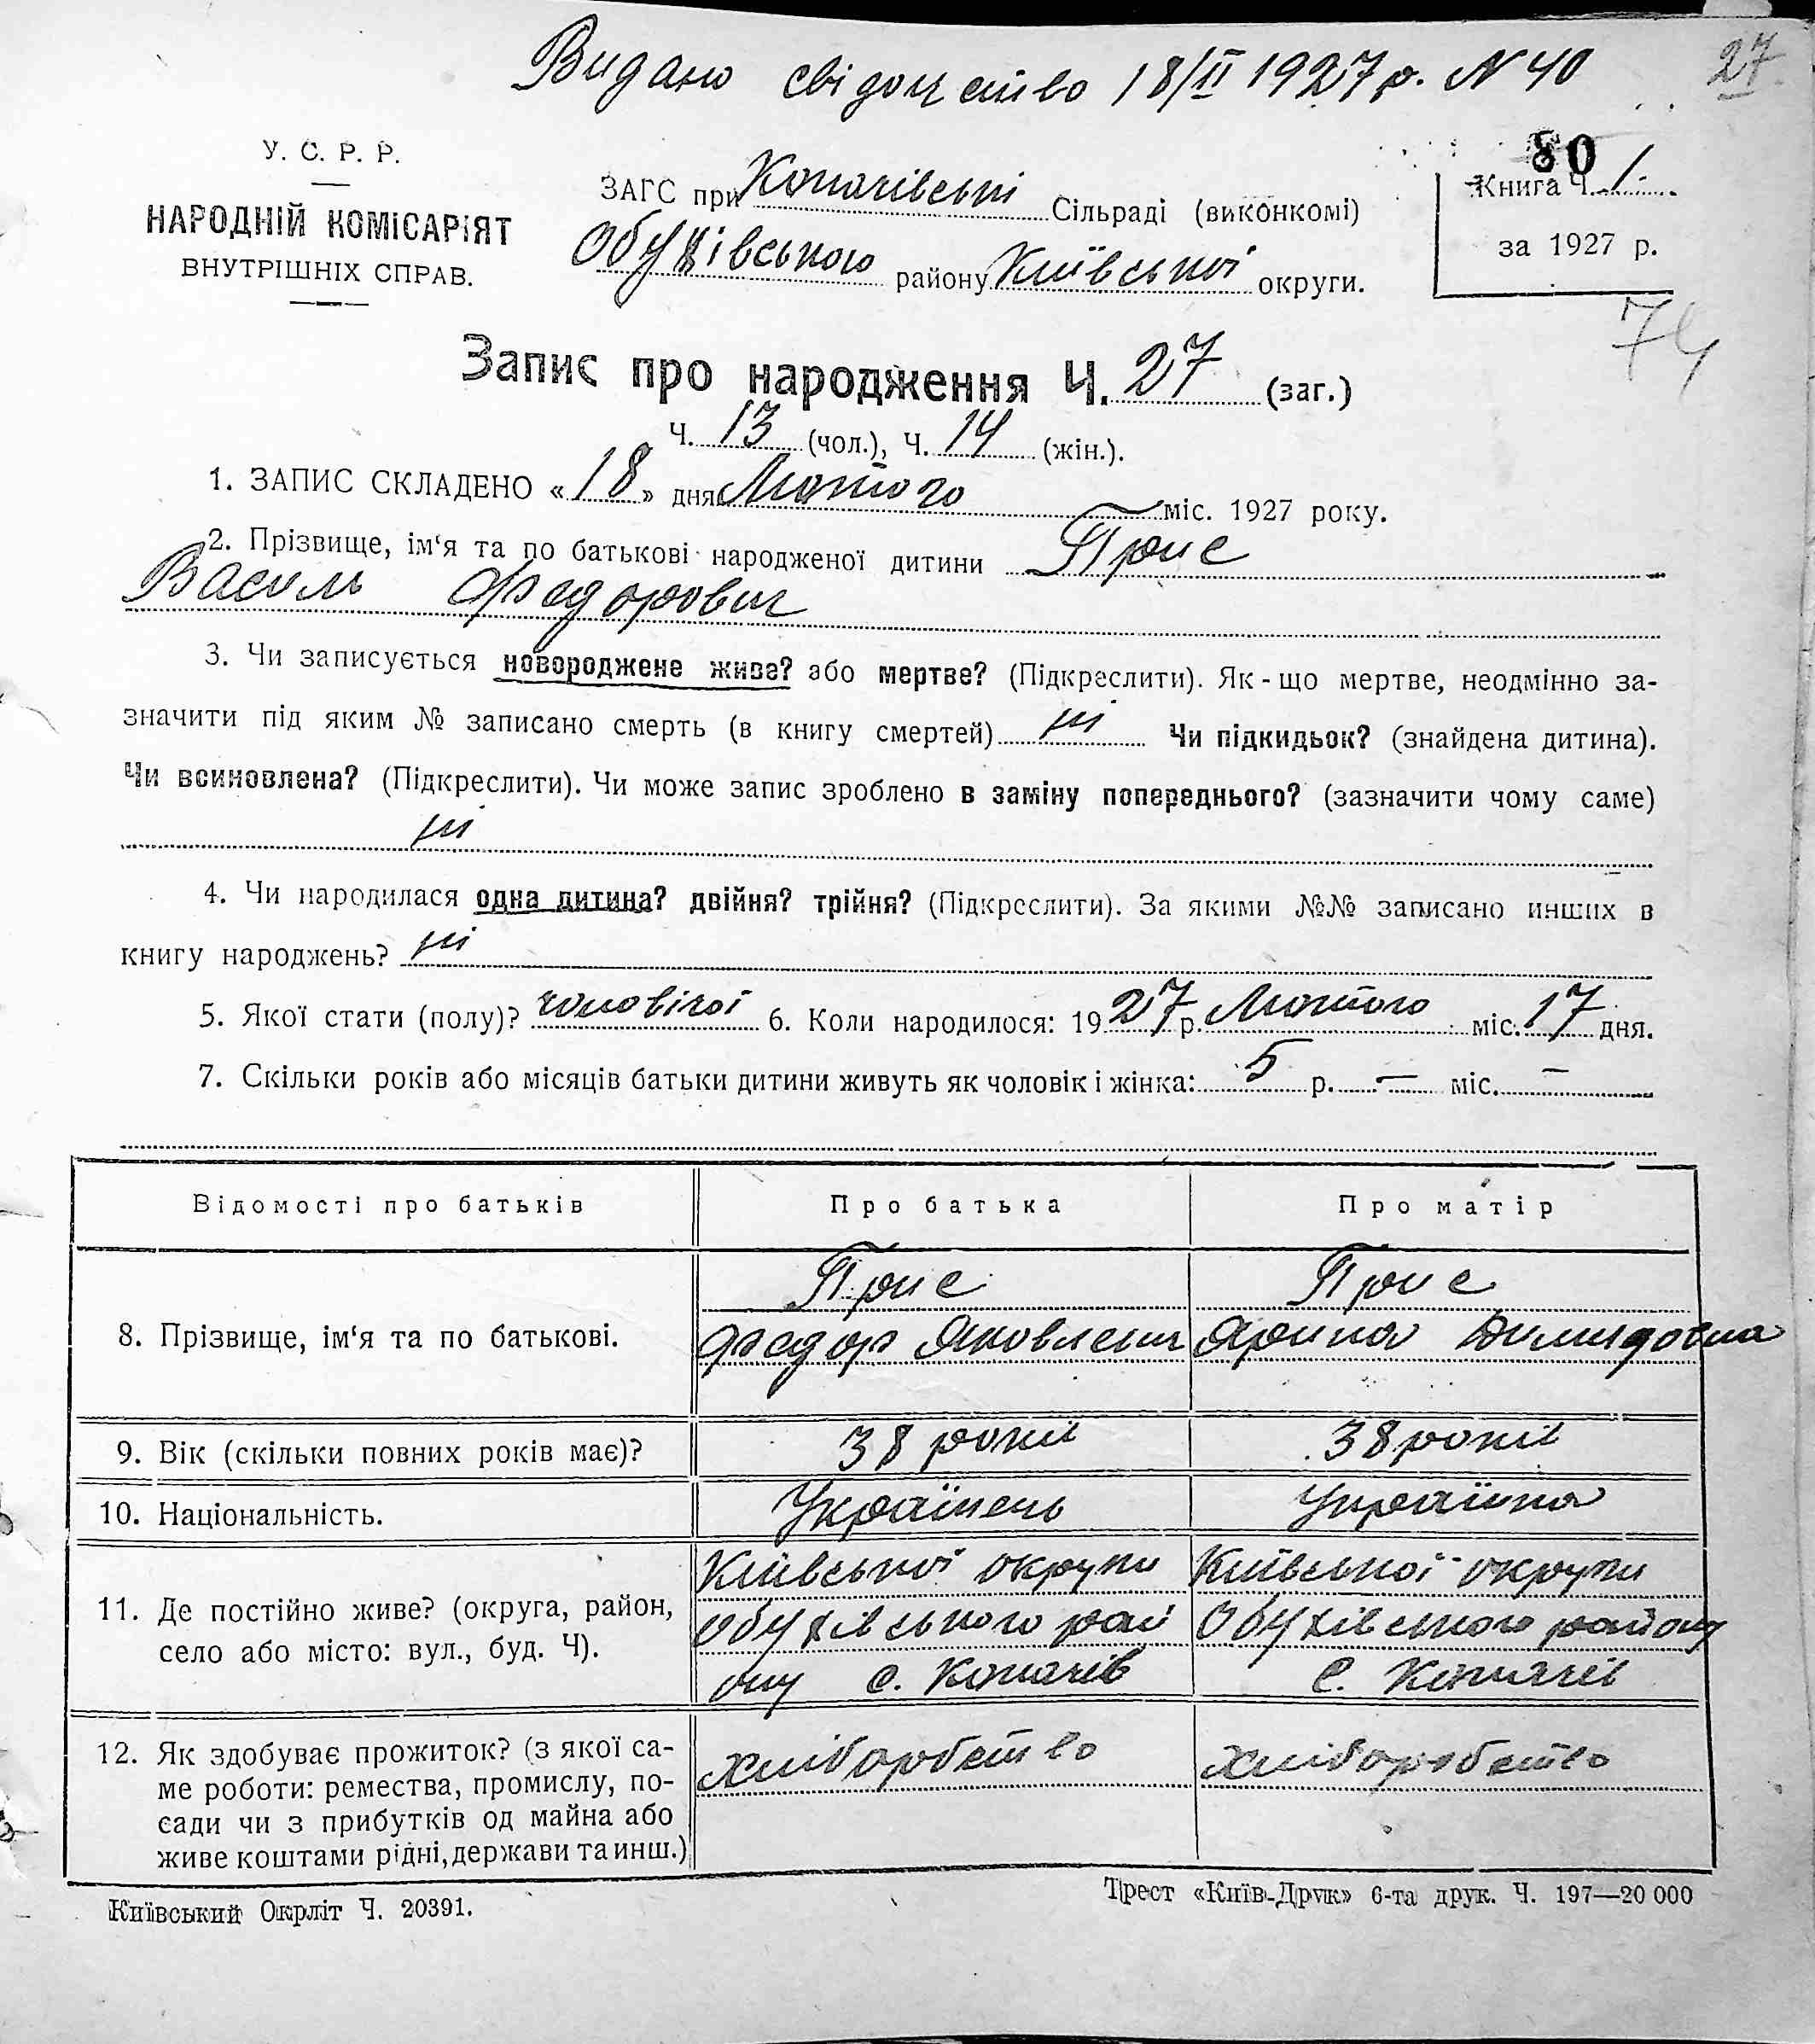 Видано свідоцтво 18/II 1927 р. N 40
27
У. С. Р. Р.
НАРОДНІЙ КОМІСАРІЯТ
ВНУТРІШНІХ СПРАВ.
ЗАГС при Копачівські Сільраді (виконкомі)
Обухівського району Київської округи.
80
Книга Ч. 1.
за 1927 р.
74
Запис про народження Ч. 27 (заг.)
Ч. 13 (чол.), Ч. 14 (жін.).
1. ЗАПИС СКЛАДЕНО «18» дня Лютого міс. 1927 року.
2. Прізвище, ім‘я та по батькові народженої дитини Прис
Василь Федорович
3. Чи записується новороджене живе? або мертве? (Підкреслити). Як-що мертве, неодмінно за-
значити під яким № записано смерть (в книгу смертей) ні Чи підкидьок? (знайдена дитина).
Чи всиновлена? (Підкреслити). Чи може запис зроблено в заміну попереднього? (зазначити чому саме)
ні
4. Чи народилася одна дитина? двійня? трійня? (Підкреслити). За якими №№ записано инших в
книгу народжень? ні
5. Якої стати (полу)? чоловічої 6. Коли народилося: 1927 р. Лютого міс. 17 дня.
7. Скільки років або місяців батьки дитини живуть як чоловік і жінка: 5 р. — міс. —
Відомості про батьків Про батька Про матір
Прис Прис
8. Прізвище, ім‘я та по батькові. Федор Яковлевич Ярина Демидовна
9. Вік (скільки повних років має)? 38 років 38 років
10. Національність. Українець Українка
Київської округи Київської округи
11. Де постійно живе? (округа, район, Обухівського рай Обухівського району
село або місто: вул., буд. Ч). ону с. Копачів С. Копачів
12. Як здобуває прожиток? (з якої са- хліборобство хліборобство
ме роботи: ремества, промислу, по-
сади чи з прибутків од майна або
живе коштами рідні, держави та инш.)
Київський Окрліт Ч. 20391.
Трест «Київ-Друк» 6-та друк. Ч. 197—20 000